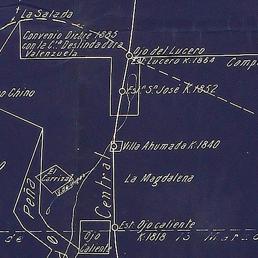 La Salada
Convenio Dicbre 1885
con la Cía Deslindadora
Valenzuela
Ojo del Lucero
Est. Lucero K.1864
Camp
Chino
Est. Sn José K.1852
Villa Ahumada K.1840
El
Carrizal
La Magdalena
Peña
Central
Est. Ojo caliente
K.1818
Ojo
Caliente
de